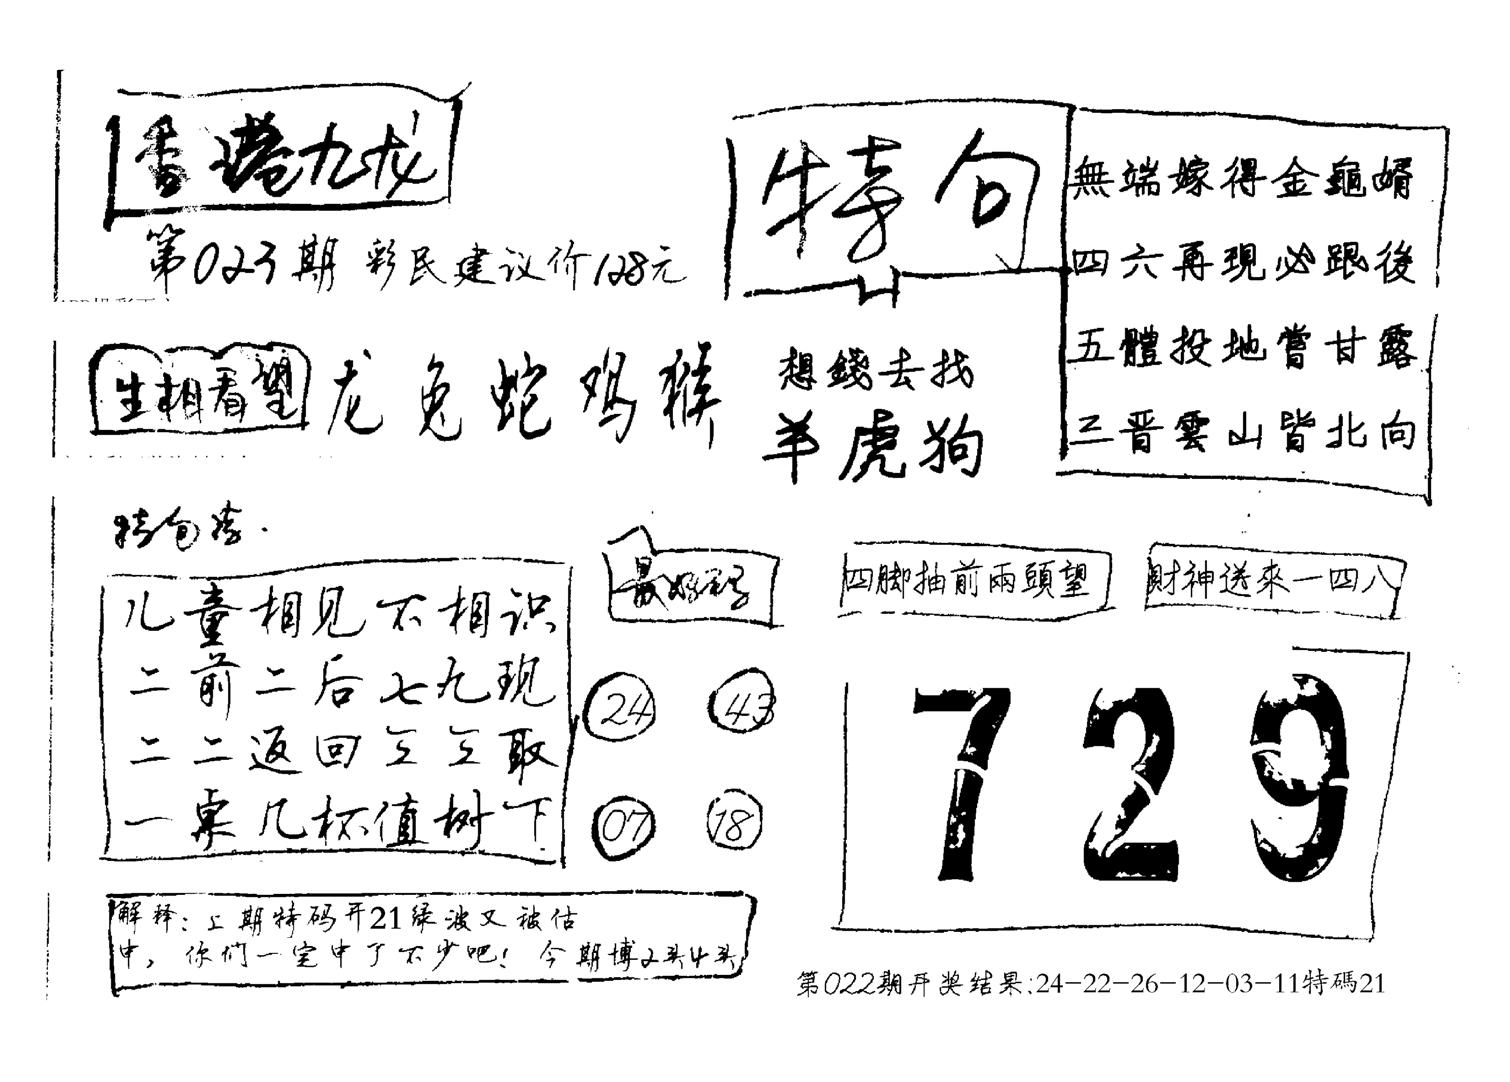 香港九龙
第023期 彩民建议价128元
特句
無端嫁得金龜婿
四六再現必跟後
五體投地嘗甘露
三晋雲山皆北向
生相看望 龙兔蛇鸡猴
想錢去找
羊虎狗
特句诗.
儿童相见不相识
二前二后七九现
二二返回
取
一桌几杯值树下
最好码
24 43
07 18
四脚抽前兩頭望
財神送來一四八
729
解释:上期特码开21绿波又被估
中,你们一定中了不少吧!今期博2头4头
第022期开奖结果:24-22-26-12-03-11特碼21